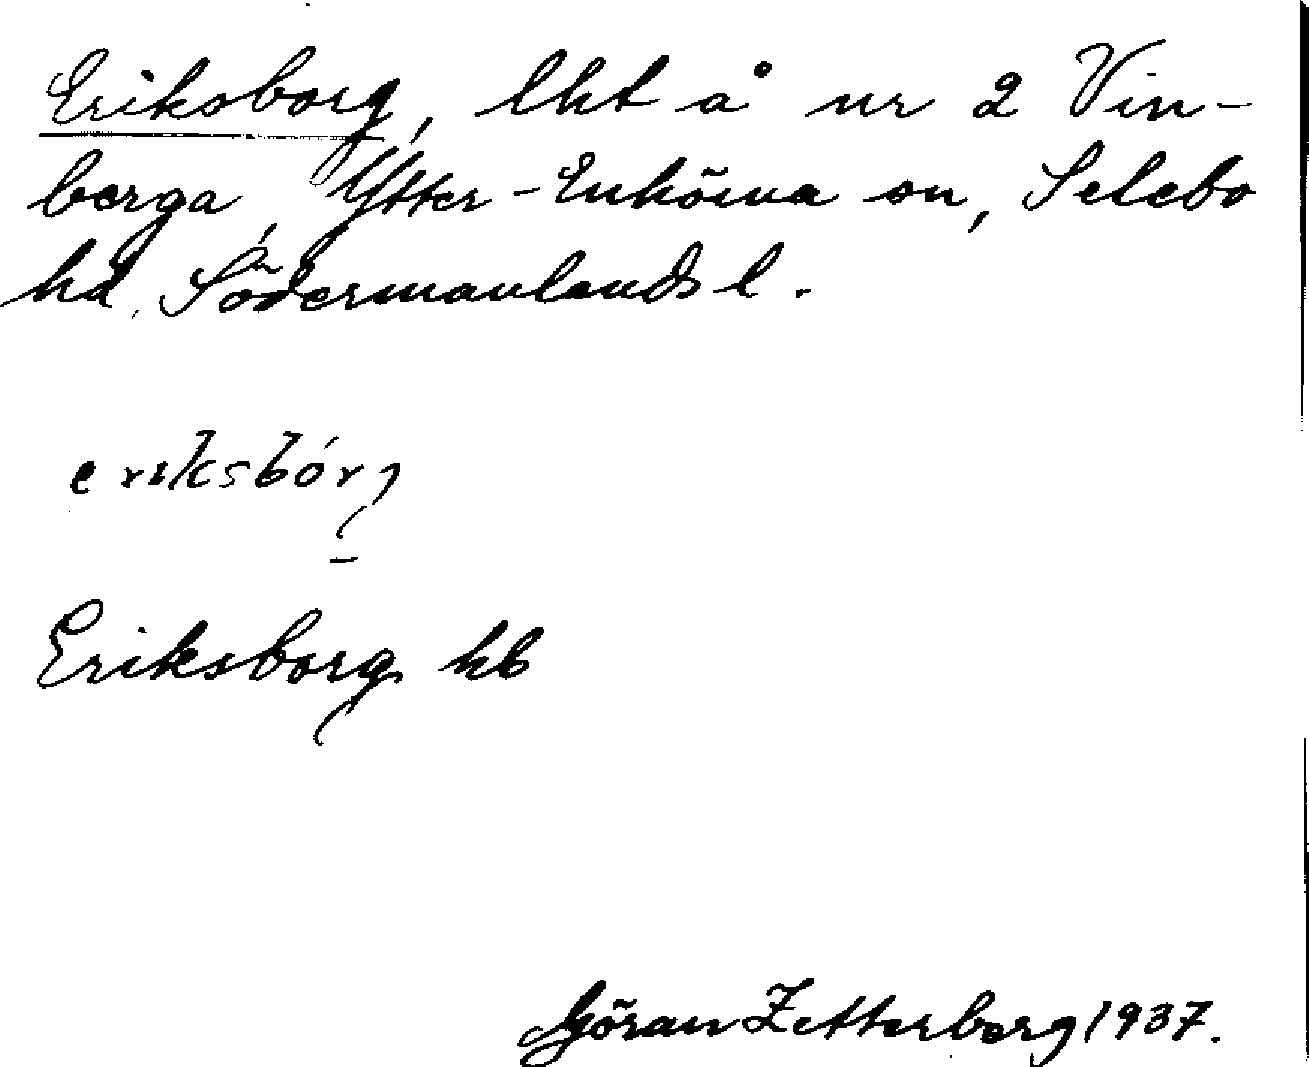 Eriksborg, lht å nr 2 Vin-
berga, Ytter-Enhörna sn, Selebo
hd, Södermanlands l.
eriksbórj
Eriksborg hb
Göran Zetterberg 1937.